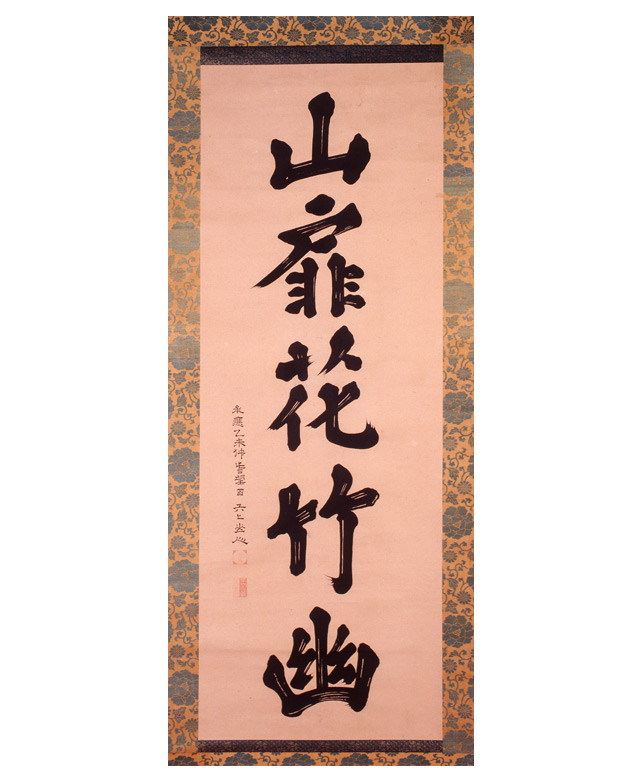 山扉花竹幽
承應乙未仲春望日